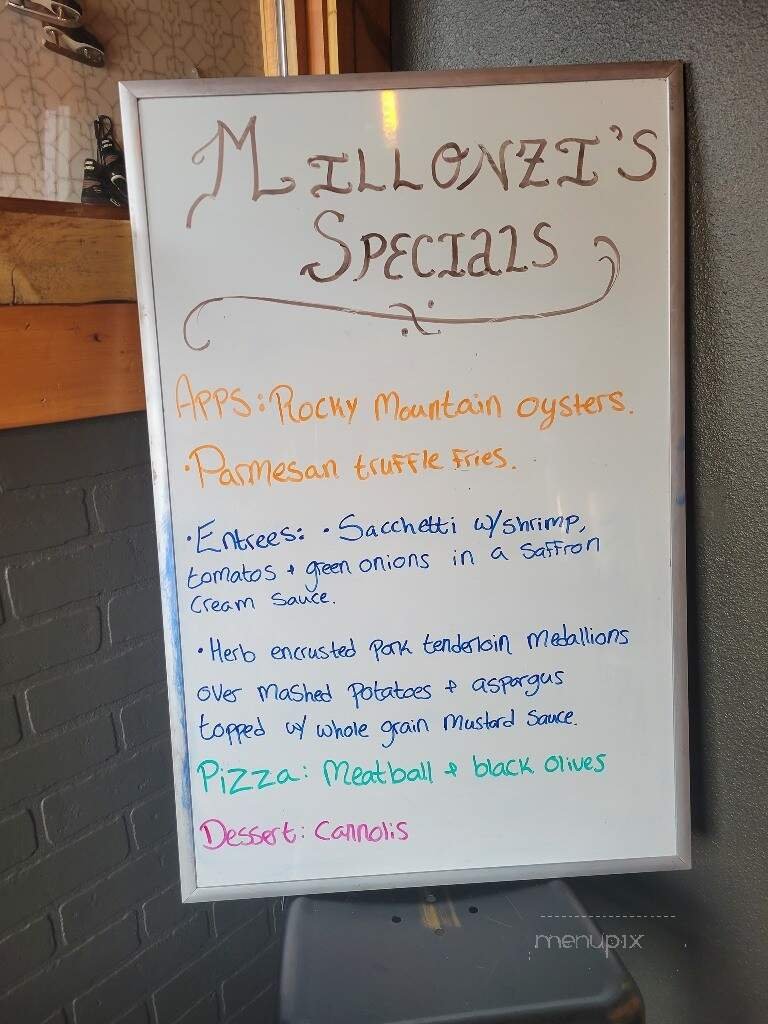 MILLONZI'S
SPECIALS
Apps: Rocky Mountain oysters.
• Parmesan truffle fries.
• Entrees: • Sacchetti w/shrimp,
tomatos + green onions in a saffron
cream sauce.
• Herb encrusted pork tenderloin medallions
over mashed potatoes + aspargus
topped w/ whole grain mustard sauce.
Pizza: Meatball + black olives
Dessert: Cannolis
menupix